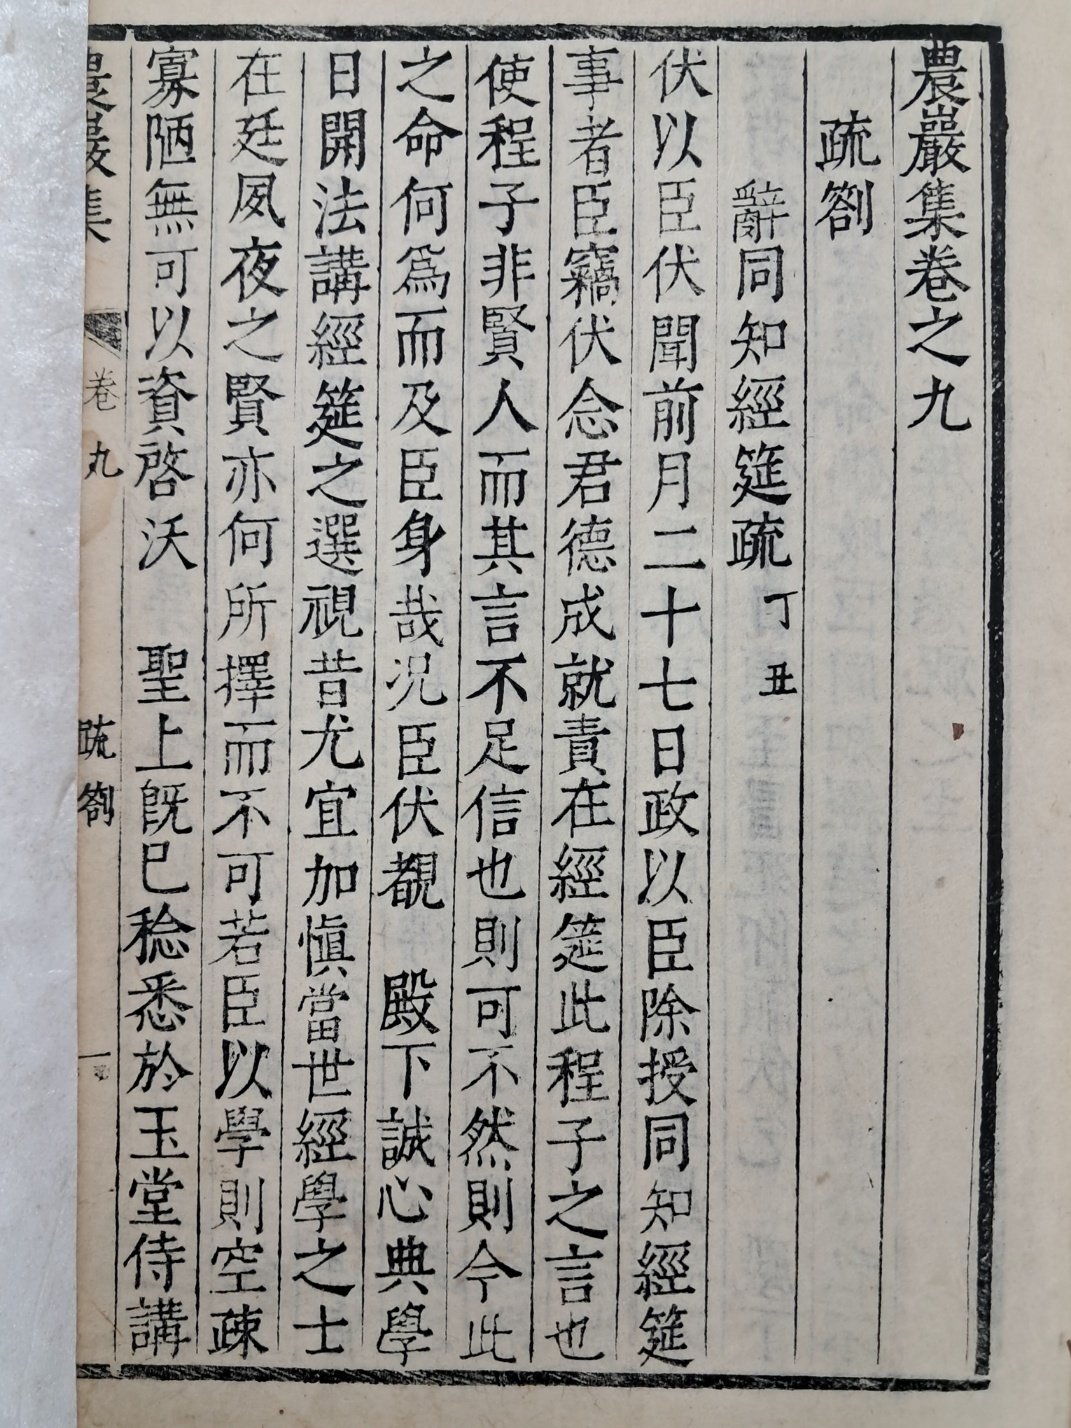 農巖集卷之九
疏劄
辭同知經筵疏 丁丑
伏以臣伏聞前月二十七日政以臣除授同知經筵
事者臣竊伏念君德成就責在經筵此程子之言也
使程子非賢人而其言不足信也則可不然則今此
之命何爲而及臣身哉况臣伏覩 殿下誠心典學
日開法講經筵之選視昔尤宜加愼當世經學之士
在廷夙夜之賢亦何所擇而不可若臣以學則空疎
寡陋無可以資啓沃 聖上旣已稔悉於玉堂侍講
農巖集 卷九 疏劄 一